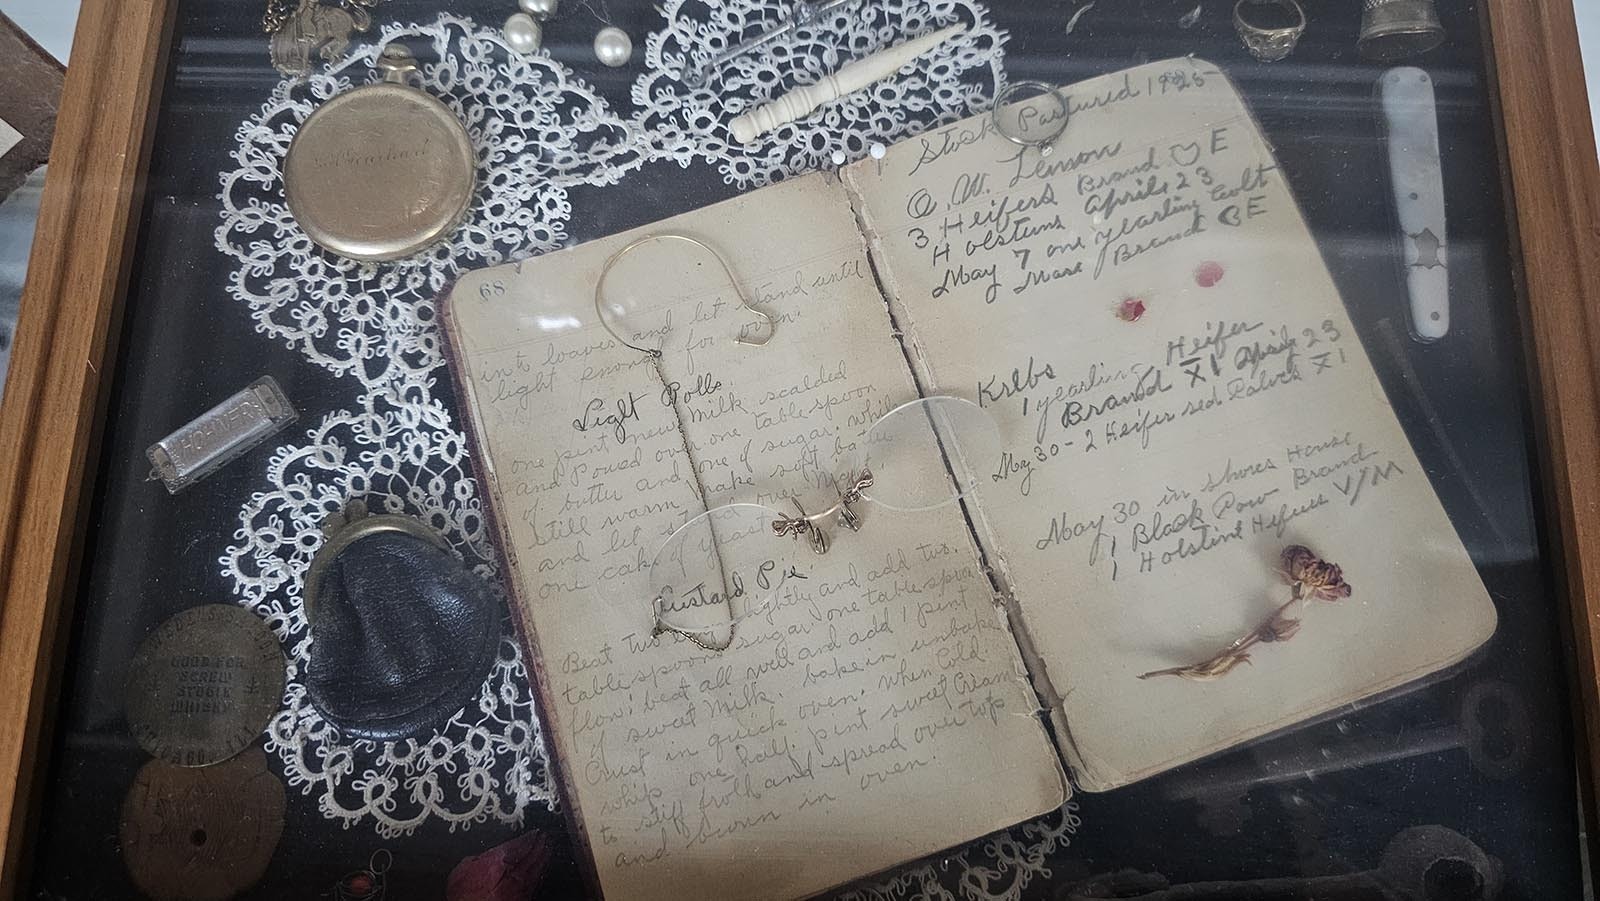 68
int loaves and let stand until
light enough for oven.
Light Rolls.
one pint new milk scalded
and poured over one table spoon
of butter and one of sugar. while
still warm, make soft batter
and let stand over night.
one cake of yeast
Custard Pie
Beat two eggs lightly and add two
table spoons sugar one table spoon
flour; beat all well and add 1 pint
of sweet milk. bake in unbaked
Crust in quick oven. when Cold.
whip one half pint sweet Cream
to stiff froth and spread over top
and brown in oven.
Stock Pastured 1925
O. W. Lemon
3 Heifers Brand E
Holsteins April 23
May 7 one yearling Colt
Mare Brand E
Krebs
1 yearling Heifer
Brand X1 April 23
May 30 - 2 Heifer red X1
May 30 in shores House
1 Black Cow Brand
1 Holstine Heifer V/M
HOHNER
GOOD FOR
SCREW
STOGIE
WHISKY
CHICAGO. ILL